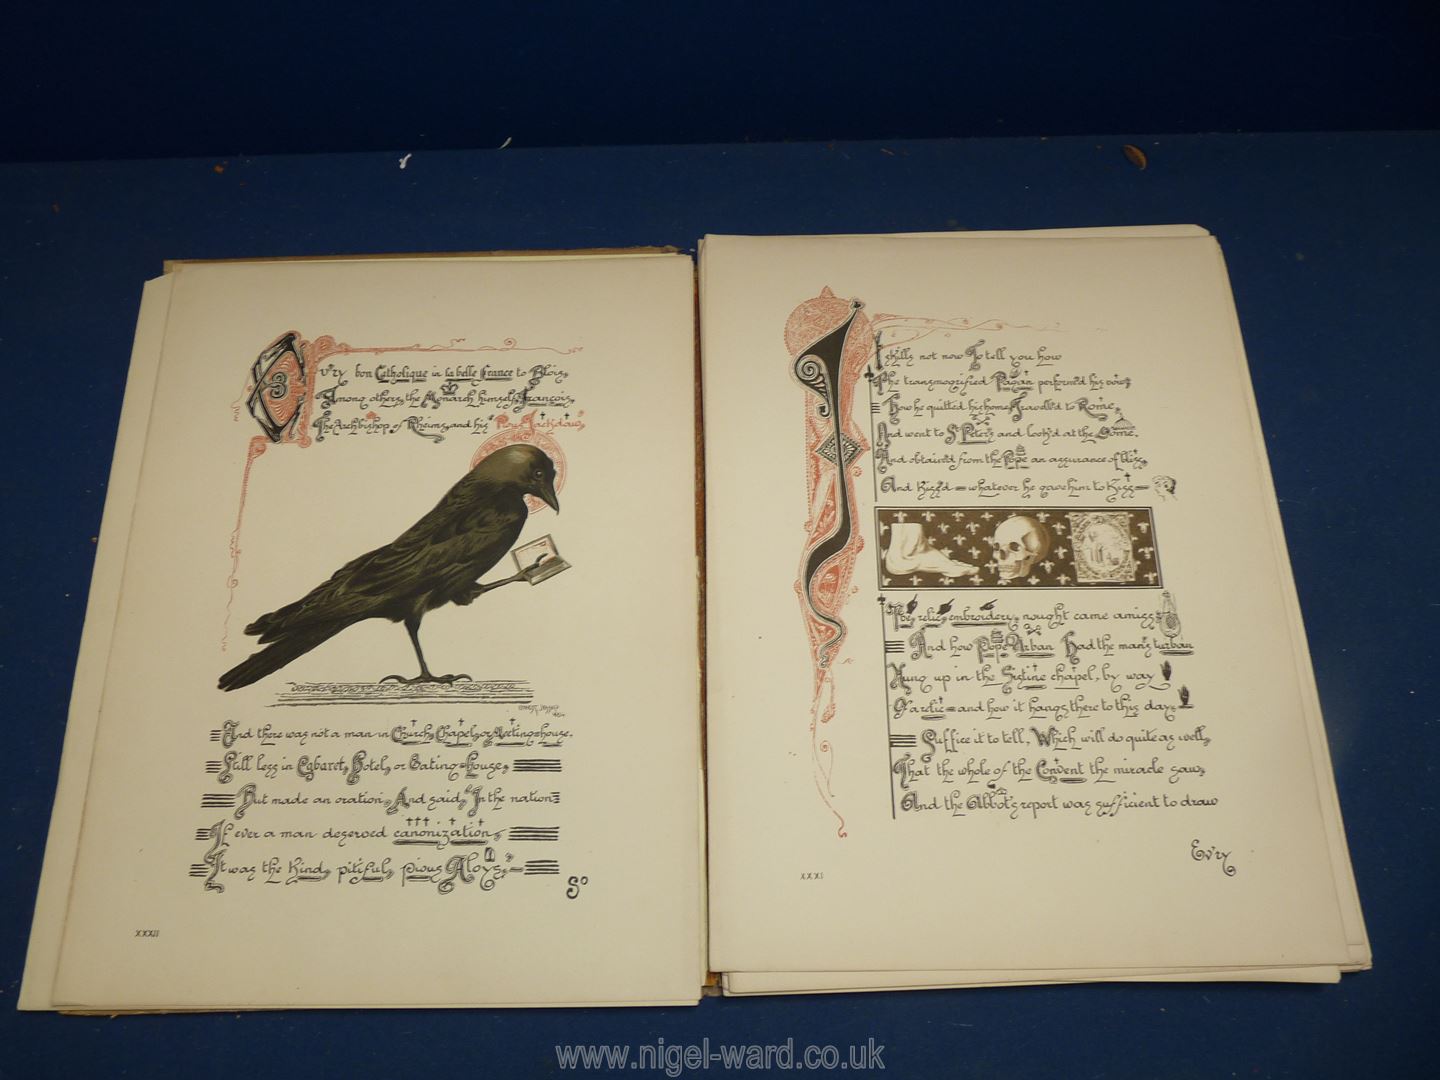 Ev'ry bon Catholique in la belle France to Blois,
Among others, the Monarch himself, François,
The Archbishop of Rheims, and his "Pious Jackdaw,"
And there was not a man in Church, Chapel, or Meeting-house,
Still less in Cabaret, Hotel, or Eating-house,
But made an oration, And said, "In the nation
If ever a man deserved canonization,
It was the kind, pitiful, pious Aloys."—
So
XXXII
I skills not now To tell you how
The transmogrified Pagan performed his vow;
How he quitted his home, Travell'd to Rome,
And went to St. Peter's and look'd at the Dome,
And obtain'd from the Pope an assurance of bliss,
And kiss'd—whatever he gave him to kiss—
relic, embroidery, nought came amiss;
And how Pope Urban Had the man's turban
Hung up in the Sistine chapel, by way
Of a relic—and how it hangs there to this day.
Suffice it to tell, Which will do quite as well,
That the whole of the Convent the miracle saw,
And the Abbot's report was sufficient to draw
Ev'ry
XXXI
www.nigel-ward.co.uk